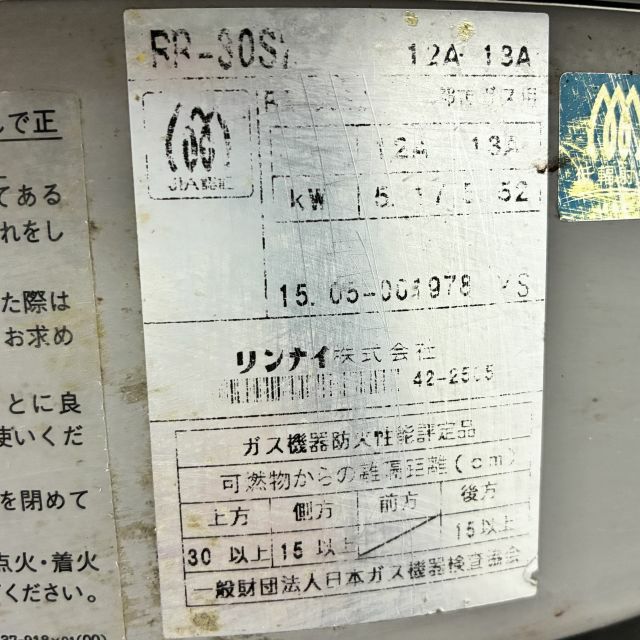 んで正
てある
れをし
た際は
お求め
とに良
使いくだ
を閉めて
点火・着火
ください。
12A 13A
JIA認証
12A 13A
kW 5.17 5.52
15.05-001978 YS
リンナイ株式会社
ガス機器防火性能評定品
可燃物からの離隔距離(cm)
上方 側方 前方 後方
30 以上 15 以上 15 以上
一般財団法人日本ガス機器検査協会